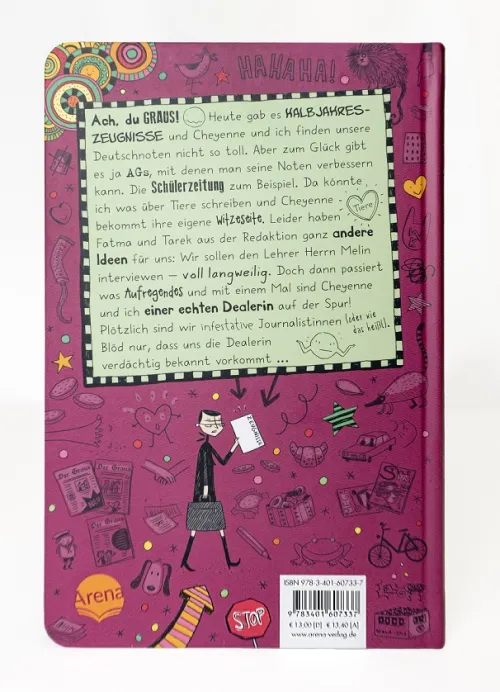 HAHAHA!
Ach, du GRAUS! Heute gab es HALBJAHRES-
ZEUGNISSE und Cheyenne und ich finden unsere
Deutschnoten nicht so toll. Aber zum Glück gibt
es ja AGs, mit denen man seine Noten verbessern
kann. Die Schülerzeitung zum Beispiel. Da könnte
ich was über Tiere schreiben und Cheyenne
Tiere
bekommt ihre eigene Witzeseite. Leider haben
Fatma und Tarek aus der Redaktion ganz andere
Ideen für uns: Wir sollen den Lehrer Herrn Melin
interviewen – voll langweilig. Doch dann passiert
was Aufregendes und mit einem Mal sind Cheyenne
und ich einer echten Dealerin auf der Spur!
Plötzlich sind wir infestative Journalistinnen (oder wie
das heißt).
Blöd nur, dass uns die Dealerin
verdächtig bekannt vorkommt ...
Der Graus
Der Graus
ISBN 978-3-401-60733-7
9 783401 607337
€ 13,00 [D] € 13,40 [A]
www.arena-verlag.de
Arena
STOP